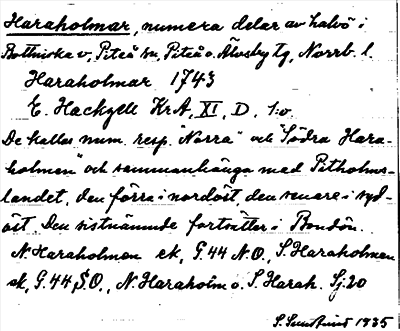 Haraholmar, numera delar av halvö i
Bottniska v, Piteå sn, Piteå o. Älvsby tg, Norrb. l.
Haraholmar 1743
E. Hackzell KrA, XI, D, 1:o
De kallas num. resp. "Norra" och "Södra Hara-
holmen" och sammanhänga med Pitholms-
landet, den förra i nordöst den senare i syd-
öst. Den sistnämnde fortsätter i Bondön.
N. Haraholmen ek, G.44 N.O, S. Haraholmen
ek, G.44, S.O, N. Haraholm o. S. Harah. Sj.20
1935